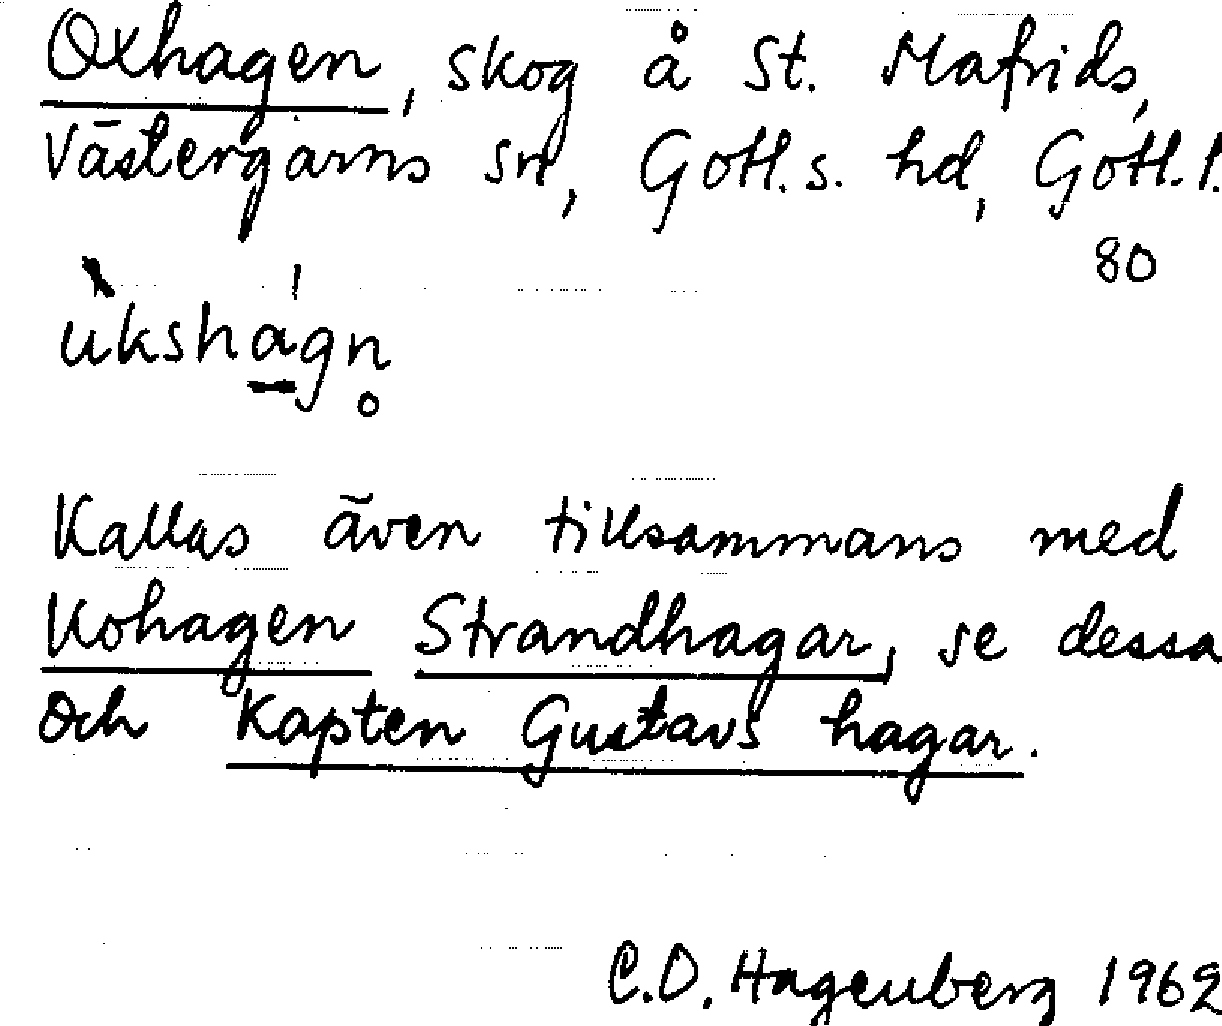 Oxhagen, skog å St. Mafrids,
Västergarns sn, Gotl.s. hd, Gotl.l.
80
ùkshá̱gn̥
Kallas även tillsammans med
Kohagen Strandhagar, se dessa
och Kapten Gustavs hagar.
C.O. Hagenberg 1962